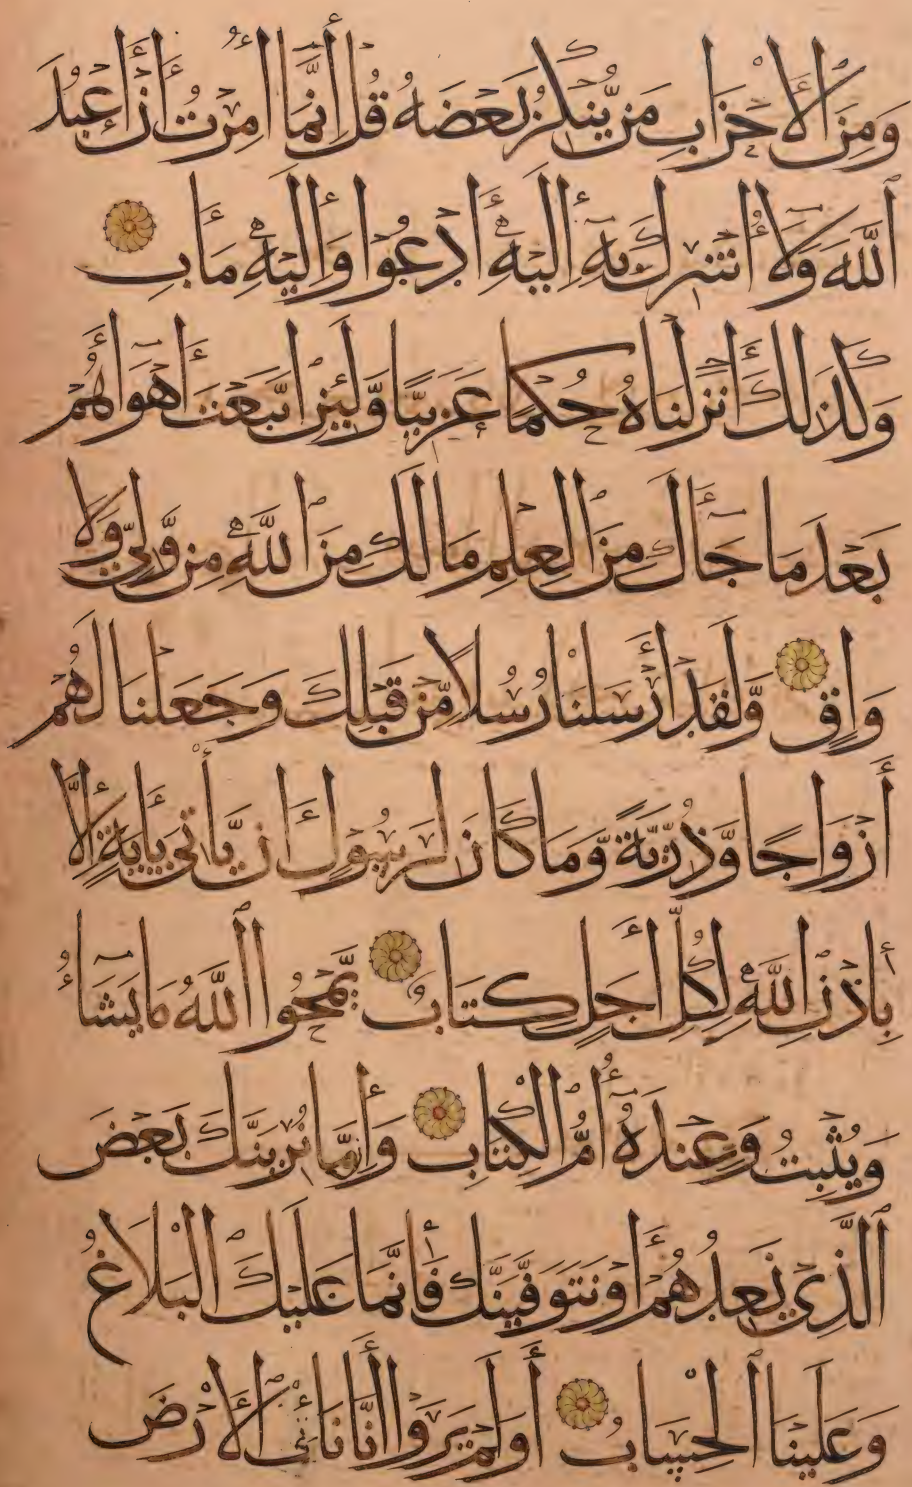 وَمِنَ الْأَحْزَابِ مَن يُّنكِرُ بَعْضَهُ قُلْ إِنَّمَا أُمِرْتُ أَنْ أَعْبُدَ
اللَّهَ وَلَا أُشْرِكَ بِهِ إِلَيْهِ أَدْعُوا وَإِلَيْهِ مَأَبِ
وَكَذَلِكَ أَنزَلْنَاهُ حُكْمًا عَرَبِيًّا وَّلَئِنِ اتَّبَعْتَ أَهْوَاءَهُمْ
بَعْدَ مَا جَاءَكَ مِنَ الْعِلْمِ مَا لَكَ مِنَ اللَّهِ مِن وَّلِيٍّ وَلَا
وَاقٍ وَّلَقَدْ أَرْسَلْنَا رُسُلًا مِّن قَبْلِكَ وَجَعَلْنَا لَهُمْ
أَزْوَاجًا وَّذُرِّيَّةً وَّمَا كَانَ لِرَسُولٍ أَن يَّأْتِيَ بِأَيَةٍ إِلَّا
بِإِذْنِ اللَّهِ لِكُلِّ أَجَلٍ كِتَابٌ يَّمْحُوا اللَّهُ مَا يَشَاءُ
وَيُثْبِتُ وَعِندَهُ أُمُّ الْكِتَابِ وَإِمَّا نُرِيَنَّكَ بَعْضَ
الَّذِي نَعِدُهُمْ أَوْ نَتَوَفَّيَنَّكَ فَإِنَّمَا عَلَيْكَ الْبَلَاغُ
وَعَلَيْنَا الْحِسَابُ أَوَلَمْ يَرَوْا أَنَّا نَأْتِي الْأَرْضَ